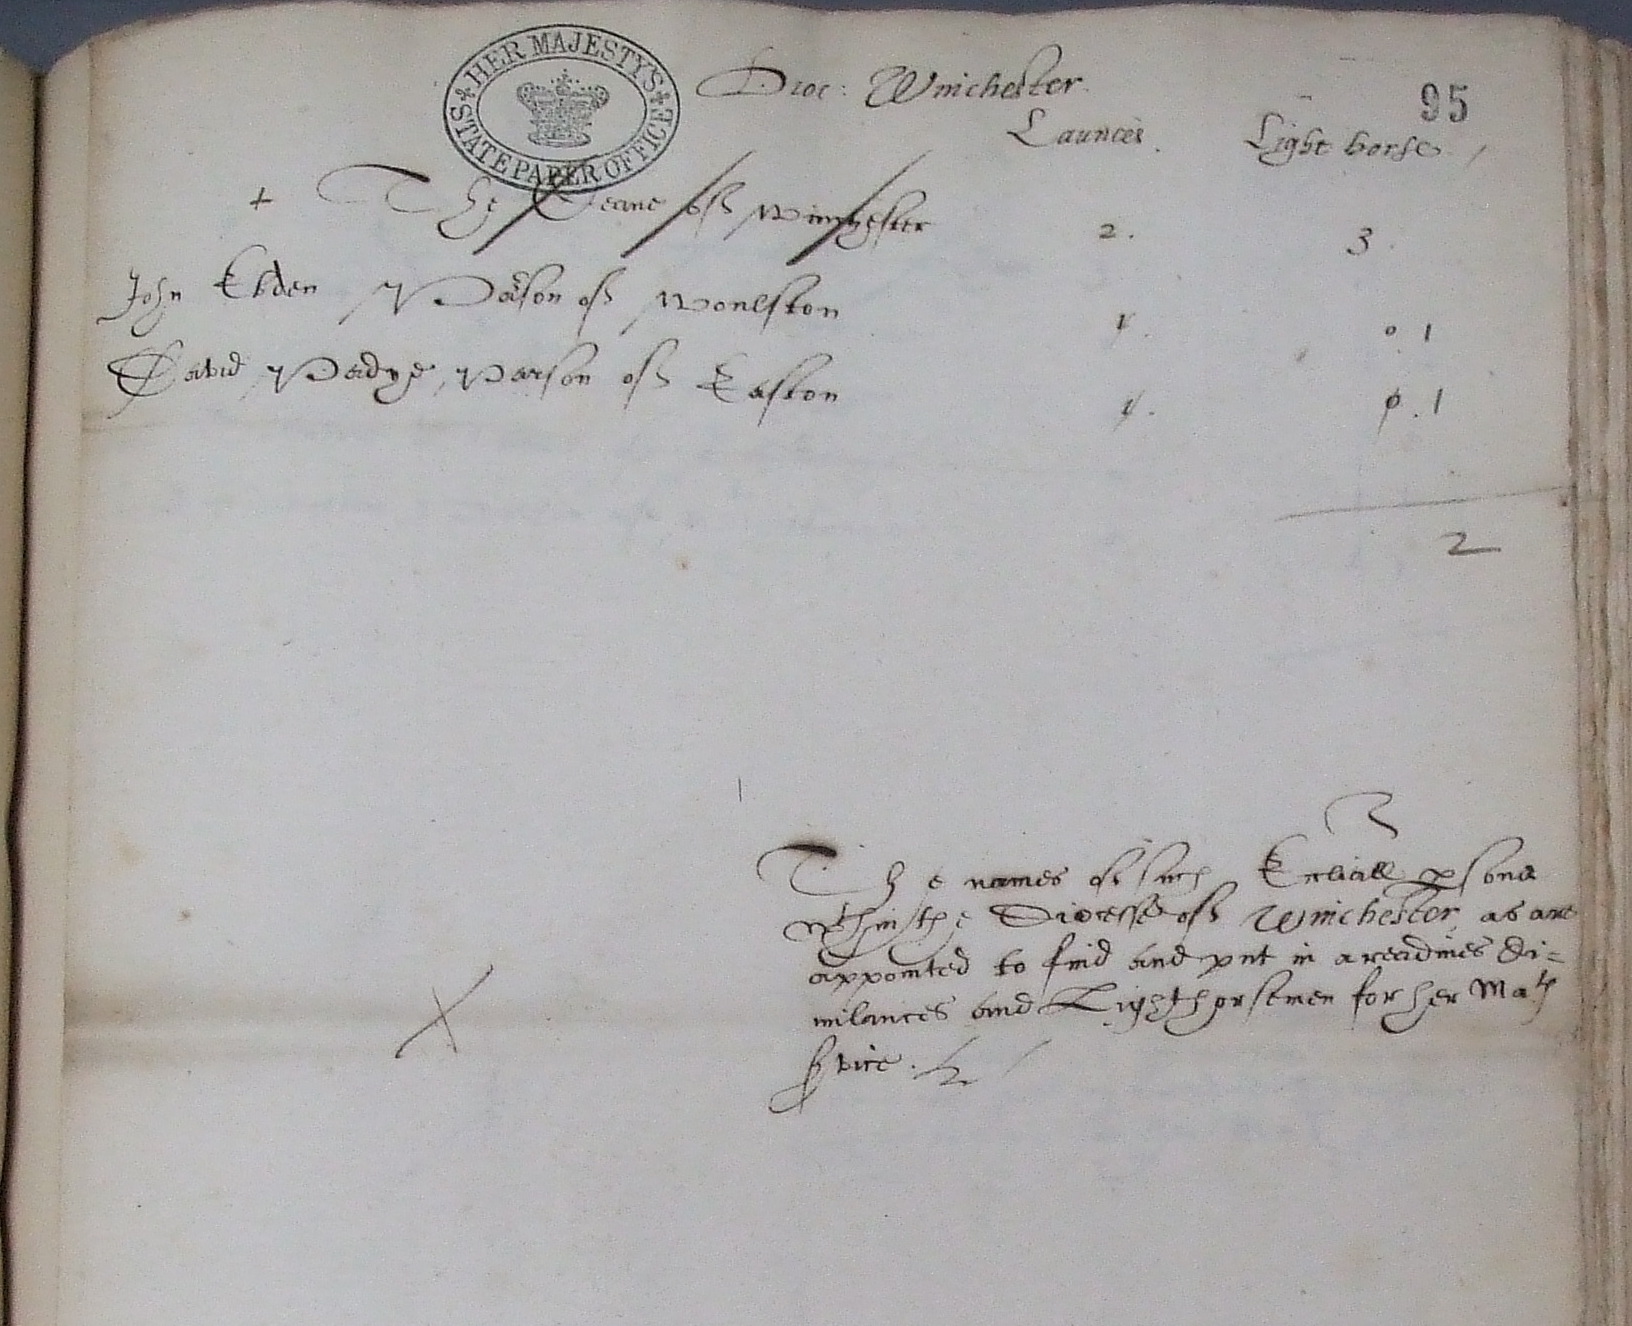 HER MAJESTY'S STATE PAPER OFFICE
Dioc: Winchester.
95
Launces. Light horse
+ The Deane off Winchester 2. 3.
John Ebden Parson off Wonston 1. 0. 1
David Padye, Parson off Easton 1. 0. 1
2
The names of such Ecc̃iall psons
wthin the Diocesse off Winchester, as are
appointed to find and put in a readines Di=
milances and Lighthorsemen for her Matꝭ
service.